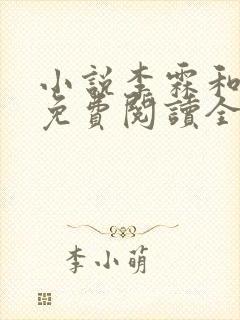 小說李霖和
免費閱讀全
李小萌